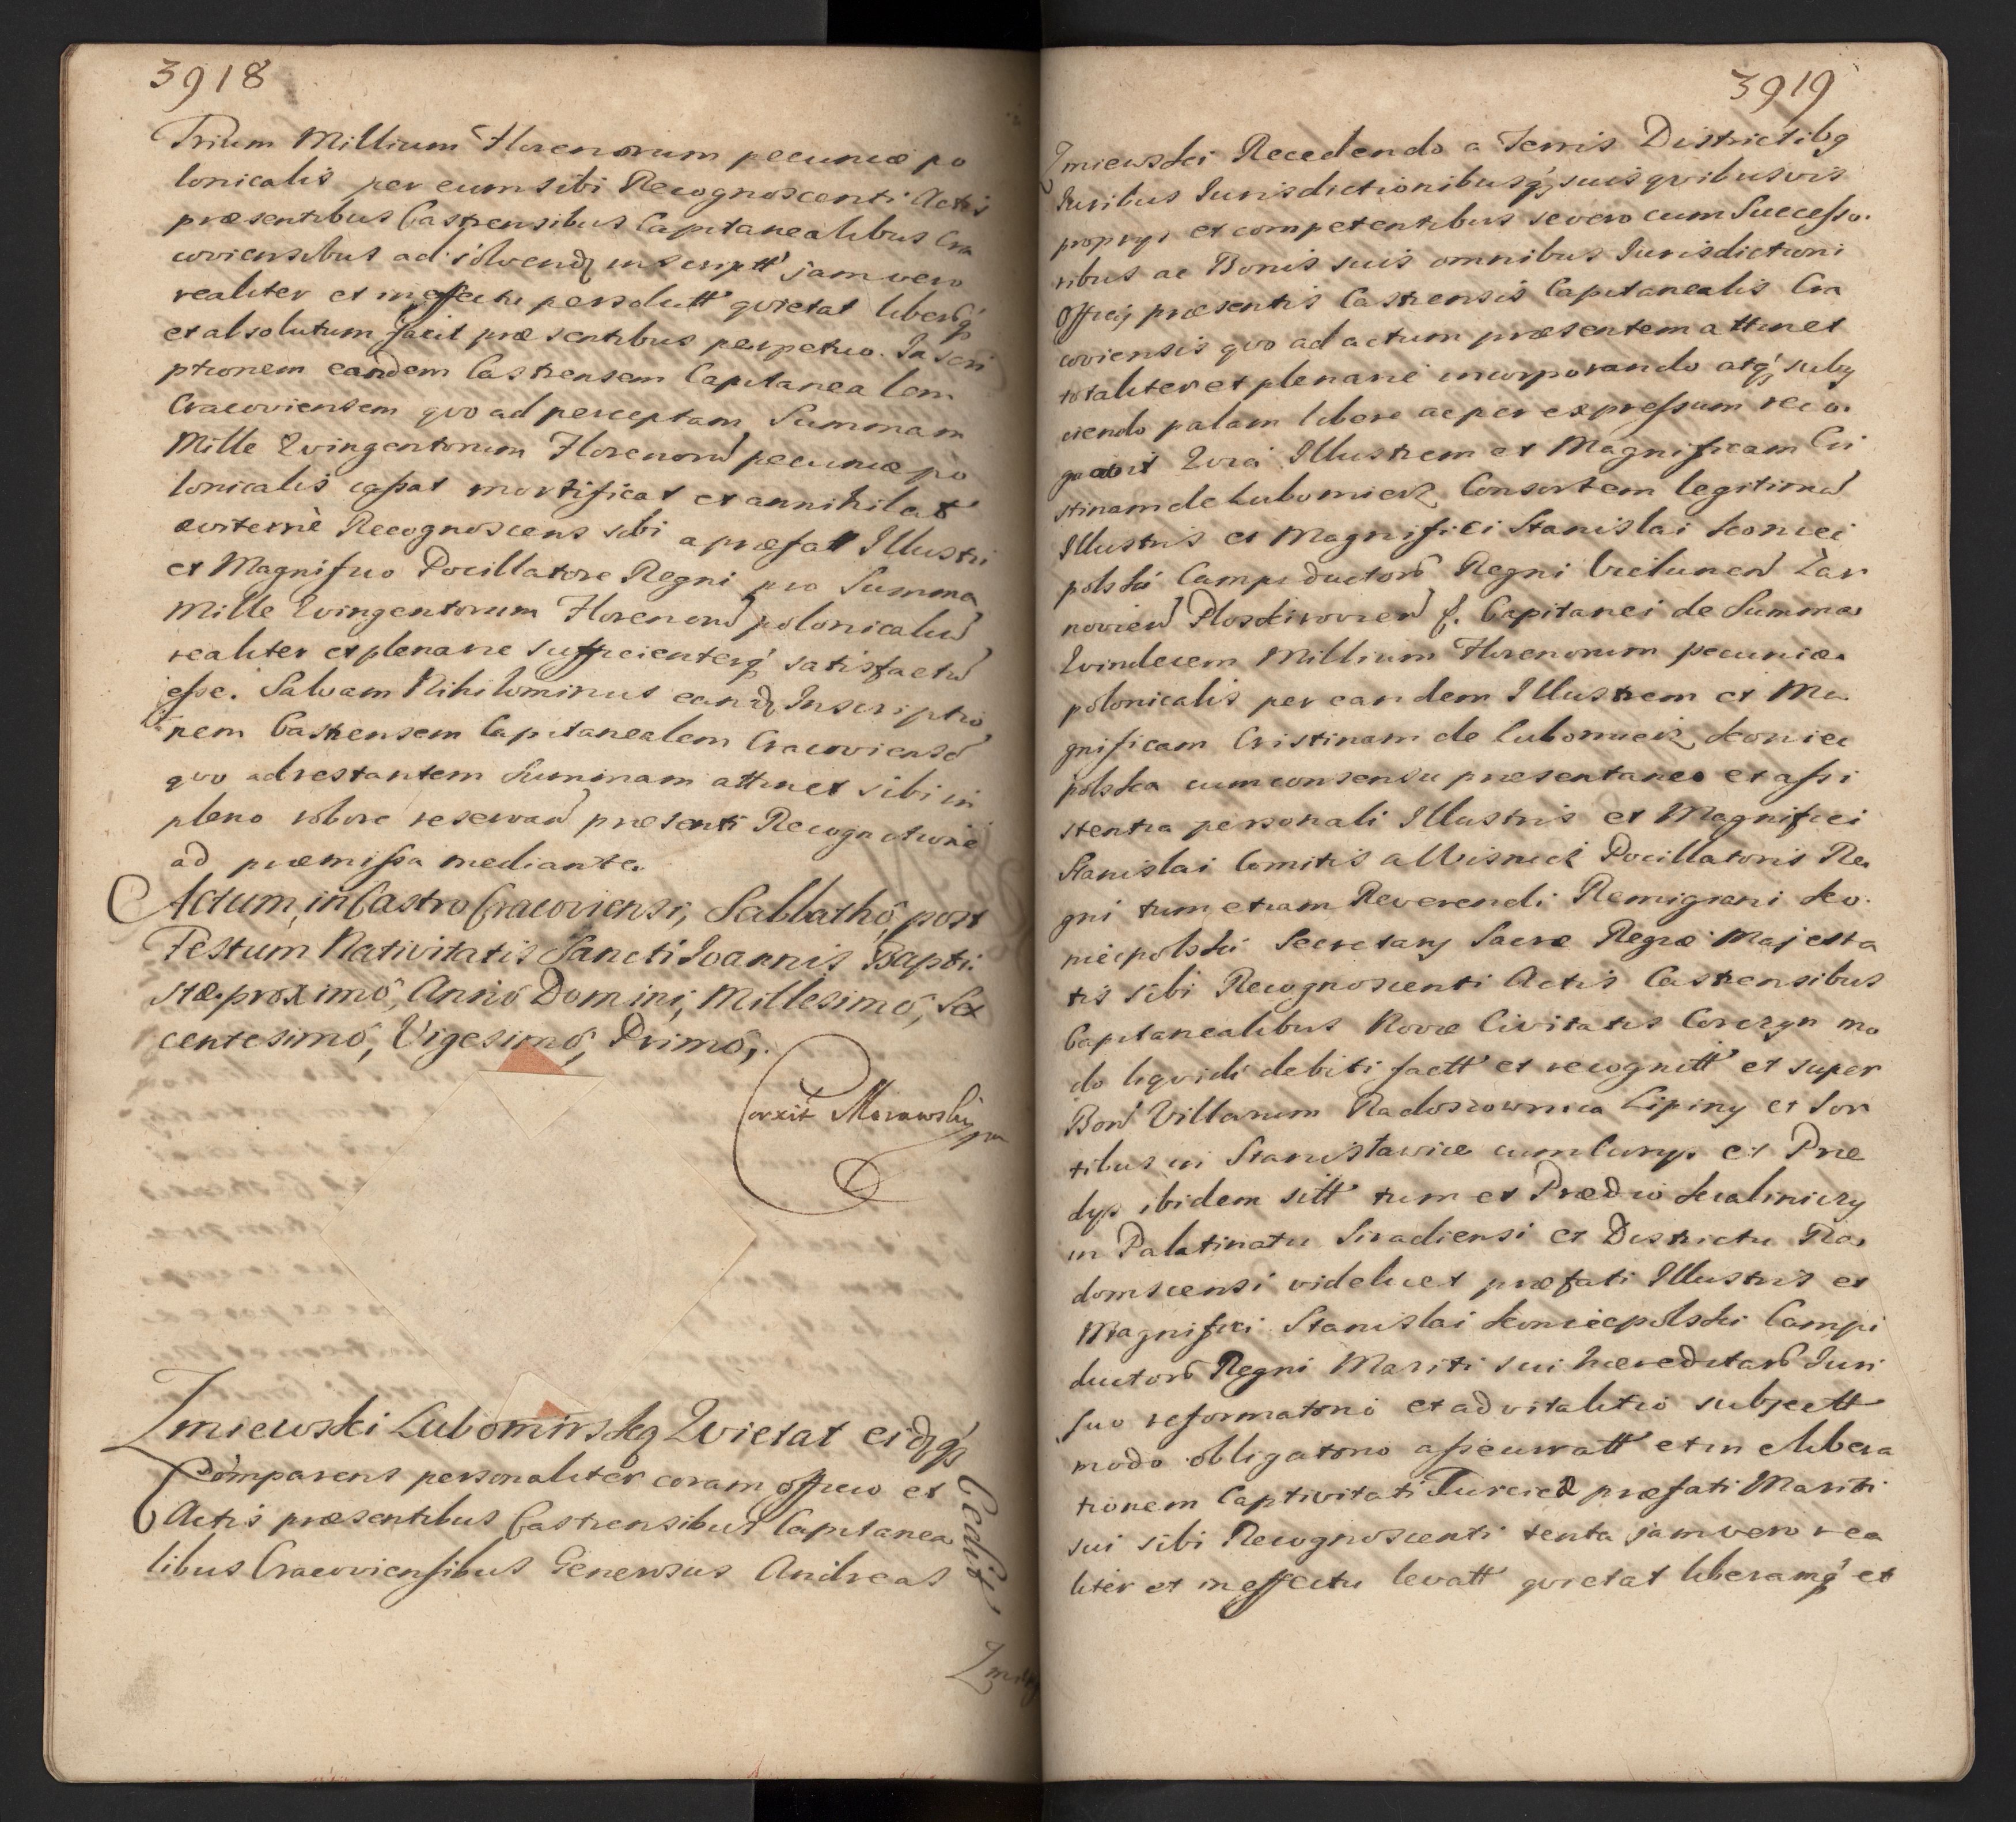 3918
Trium Millium Florenorum pecuniæ po
lonicalis per eum sibi Recognoscenti Actis
præsentibus Castrensibus Capitanealibus Cra
coviensibus ad solvend inscriptt jam vero
realiter et in effectu persolutt qvietat liberūq́
et absolutum facit præsentibus perpetuo. Inscri
ptionem eandem Castrensem Capitanealem
Cracoviensem qvo ad perceptam Summam
Mille Qvingentorum Florenorū pecuniæ po
lonicalis cassat mortificat et annihilat
æviternè Recognoscens sibi a præfatt Illustri
et Magnifico Pocillatore Regni pro Summa
Mille Qvingentorum Florenorū polonicaliū
realiter et plenarie sufficienterq́ satisfactū
esse. Salvam Nihilominus eand Inscriptio
nem Castrensem Capitanealem Cracoviensē
qvo ad restantem Summam attinet sibi in
pleno robore reservan præsenti Recognitione
ad præmissa mediante.
Actum, in Castro Cracoviensi, Sabbathô, post
Festum Nativitatis Sancti Joannis Bapti:
stæ proximô, Annô Domini, Millesimô, Sex
centesimô, Vigesimô, Primô,.
Corxit Morawski mp
Zmiewski Lubomirską Qvietat eidq́
Cedit,
Comparens personaliter coram officio et
Actis præsentibus Castrensibus Capitanea
libus Cracoviensibus Generosus Andreas
3919
Zmiewski Recedendo a Terris Districtibq
Juribus Jurisdictionibusq́ suis qvibusvis
proprys et competentibus se vero cum Successo.
ribus ac Bonis suis omnibus Jurisdictioni
Officij præsentis Castrensis Capitanealis Cra
coviensis qvo ad actum præsentem attinet
totaliter et plenarie incorporando atq́ subij
ciendo palam libere ac per expressum reco.
gnovit Qvia Illustrem et Magnificam Cri
stinam de Lubomierz Consortem legitimā
Illustris et Magnifici Stanislai Koniec
polski Campiductoris Regni Vielunen Zar
novien Ploskirovien &. Capitanei de Summa
Qvindecem Millium Florenorum pecuniæ
polonicalis per eandem Illustrem et Ma
gnificam Cristinam de Lubomierz Koniec
polska cum consensu præsentaneo et assi
stentia personali Illustris et Magnifici
Stanislai Comitis a Wisnicz Pocillatoris Re
gni tum etiam Reverendi Remigiani Ko.
niecpolski Secretarij Sacræ Regiæ Majesta
tis sibi Recognoscenti Actis Castrensibus
Capitanealibus Novæ Civitatis Corczyn mo
do liqvidi debiti factt et recognitt et super
Bonis Villarum Radoszownica Lipiny et Sor
tibus in Stanisławice cum Curys et Præ
dys ibidem sitt tum et Prædio
in Palatinatu Siradiensi et Districtu Ra
domscensi videlicet præfati Illustris et
Magnifici Stanislai Koniecpolski Campi
ductoris Regni Mariti sui hæreditarÿs Juri
suo reformatorio et advitalitio subjectt
modo obligatorio assecuratt et in elibera
tionem Captivitati Turcicæ præfati Mariti
sui sibi Recognoscenti tenta jam vero rea
liter et in effectu levatt qvietat liberamq́ et